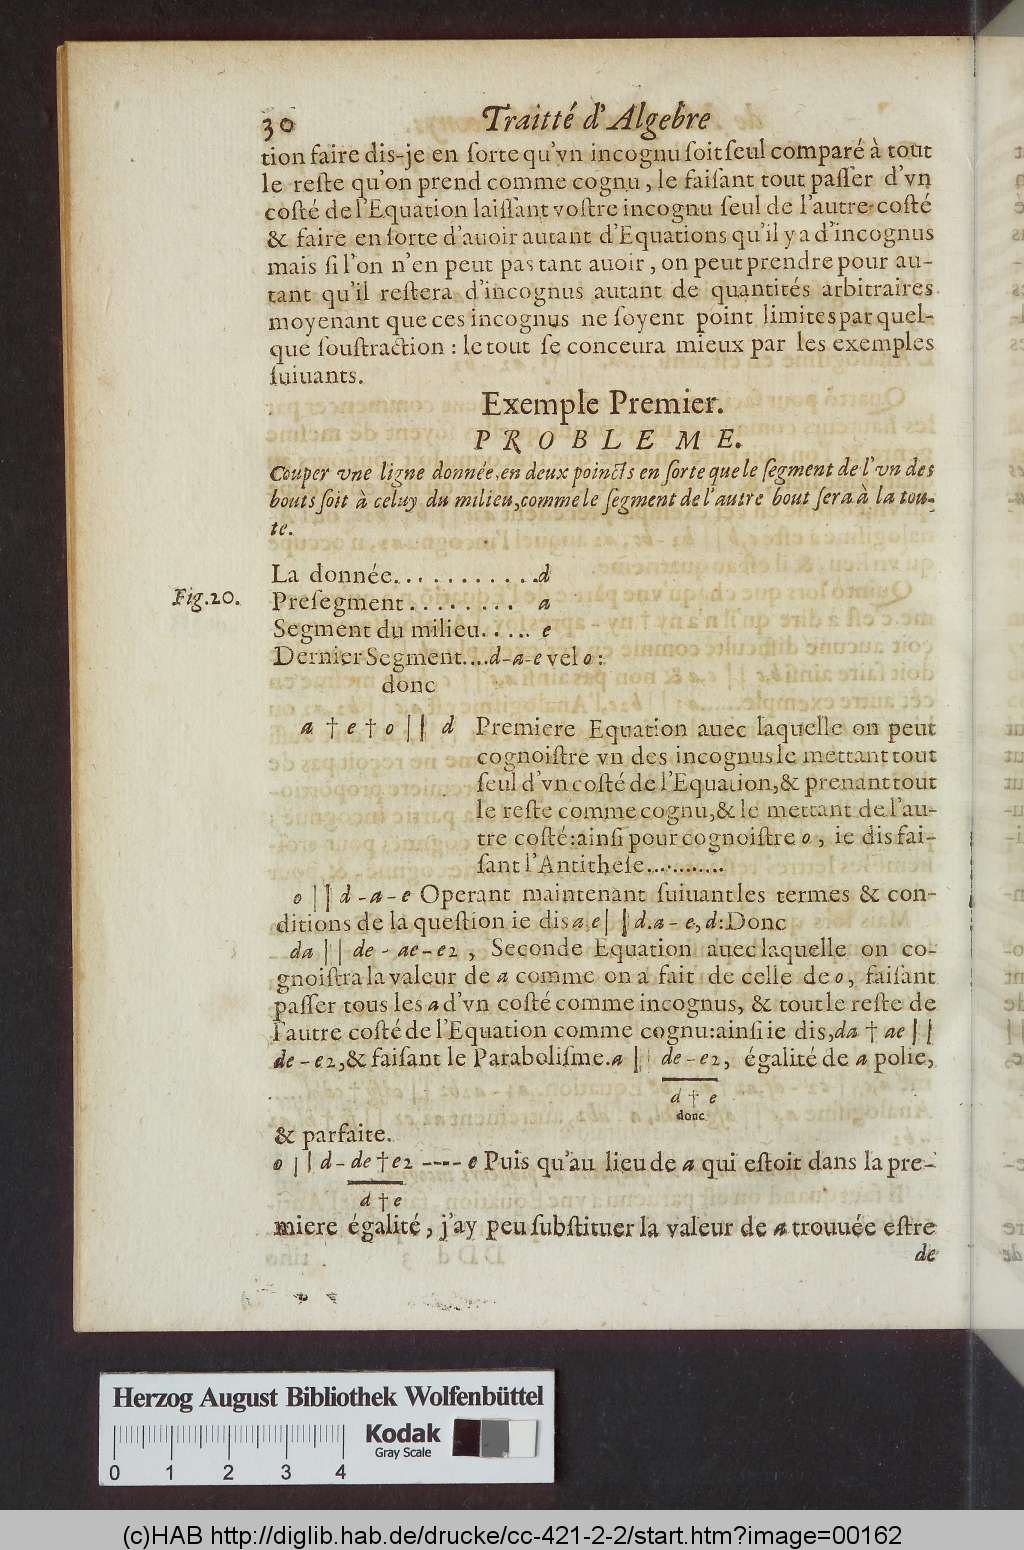 30 Traitté d'Algebre
tion faire dis-je en ſorte qu'vn incognu ſoit ſeul comparé à tout
le reſte qu'on prend comme cognu, le faiſant tout paſſer d'vn
coſté de l'Equation laiſſant voſtre incognu ſeul de l'autre coſté
& faire en ſorte d'auoir autant d'Equations qu'il y a d'incognus
mais ſi l'on n'en peut pas tant auoir, on peut prendre pour au-
tant qu'il reſtera d'incognus autant de quantités arbitraires
moyenant que ces incognus ne ſoyent point limites par quel-
que ſouſtraction : le tout ſe conceura mieux par les exemples
ſuiuants.
Exemple Premier.
PROBLEME.
Couper vne ligne donnée, en deux poincts en ſorte que le ſegment de l'vn des
bouts ſoit à celuy du milieu, comme le ſegment de l'autre bout ſera à la tou-
te.
La donnée............d
Fig. 20. Preſegment......... a
Segment du milieu..... e
Dernier Segment....d-a-e vel o:
donc
a † e † o || d Premiere Equation auec laquelle on peut
cognoiſtre vn des incognus le mettant tout
ſeul d'vn coſté de l'Equation, & prenant tout
le reſte comme cognu, & le mettant de l'au-
tre coſté: ainſi pour cognoiſtre o, ie dis fai-
ſant l'Antitheſe............
o || d - a - e Operant maintenant ſuiuant les termes & con-
ditions de la queſtion ie dis a, e || d. a - e, d: Donc
da || de - ae - e2, Seconde Equation auec laquelle on co-
gnoiſtra la valeur de a comme on a fait de celle de o, faiſant
paſſer tous les a d'vn coſté comme incognus, & tout le reſte de
l'autre coſté de l'Equation comme cognu: ainſi ie dis, da † ae ||
de - e2, & faiſant le Paraboliſme. a || de - e2, égalité de a polie,
d † e
donc
& parfaite.
o || d - de † e2 ---- e Puis qu'au lieu de a qui eſtoit dans la pre-
d † e
miere égalité, j'ay peu ſubſtituer la valeur de a trouuée eſtre
de
Herzog August Bibliothek Wolfenbüttel
Kodak
Gray Scale
0 1 2 3 4
(c)HAB http://diglib.hab.de/drucke/cc-421-2-2/start.htm?image=00162